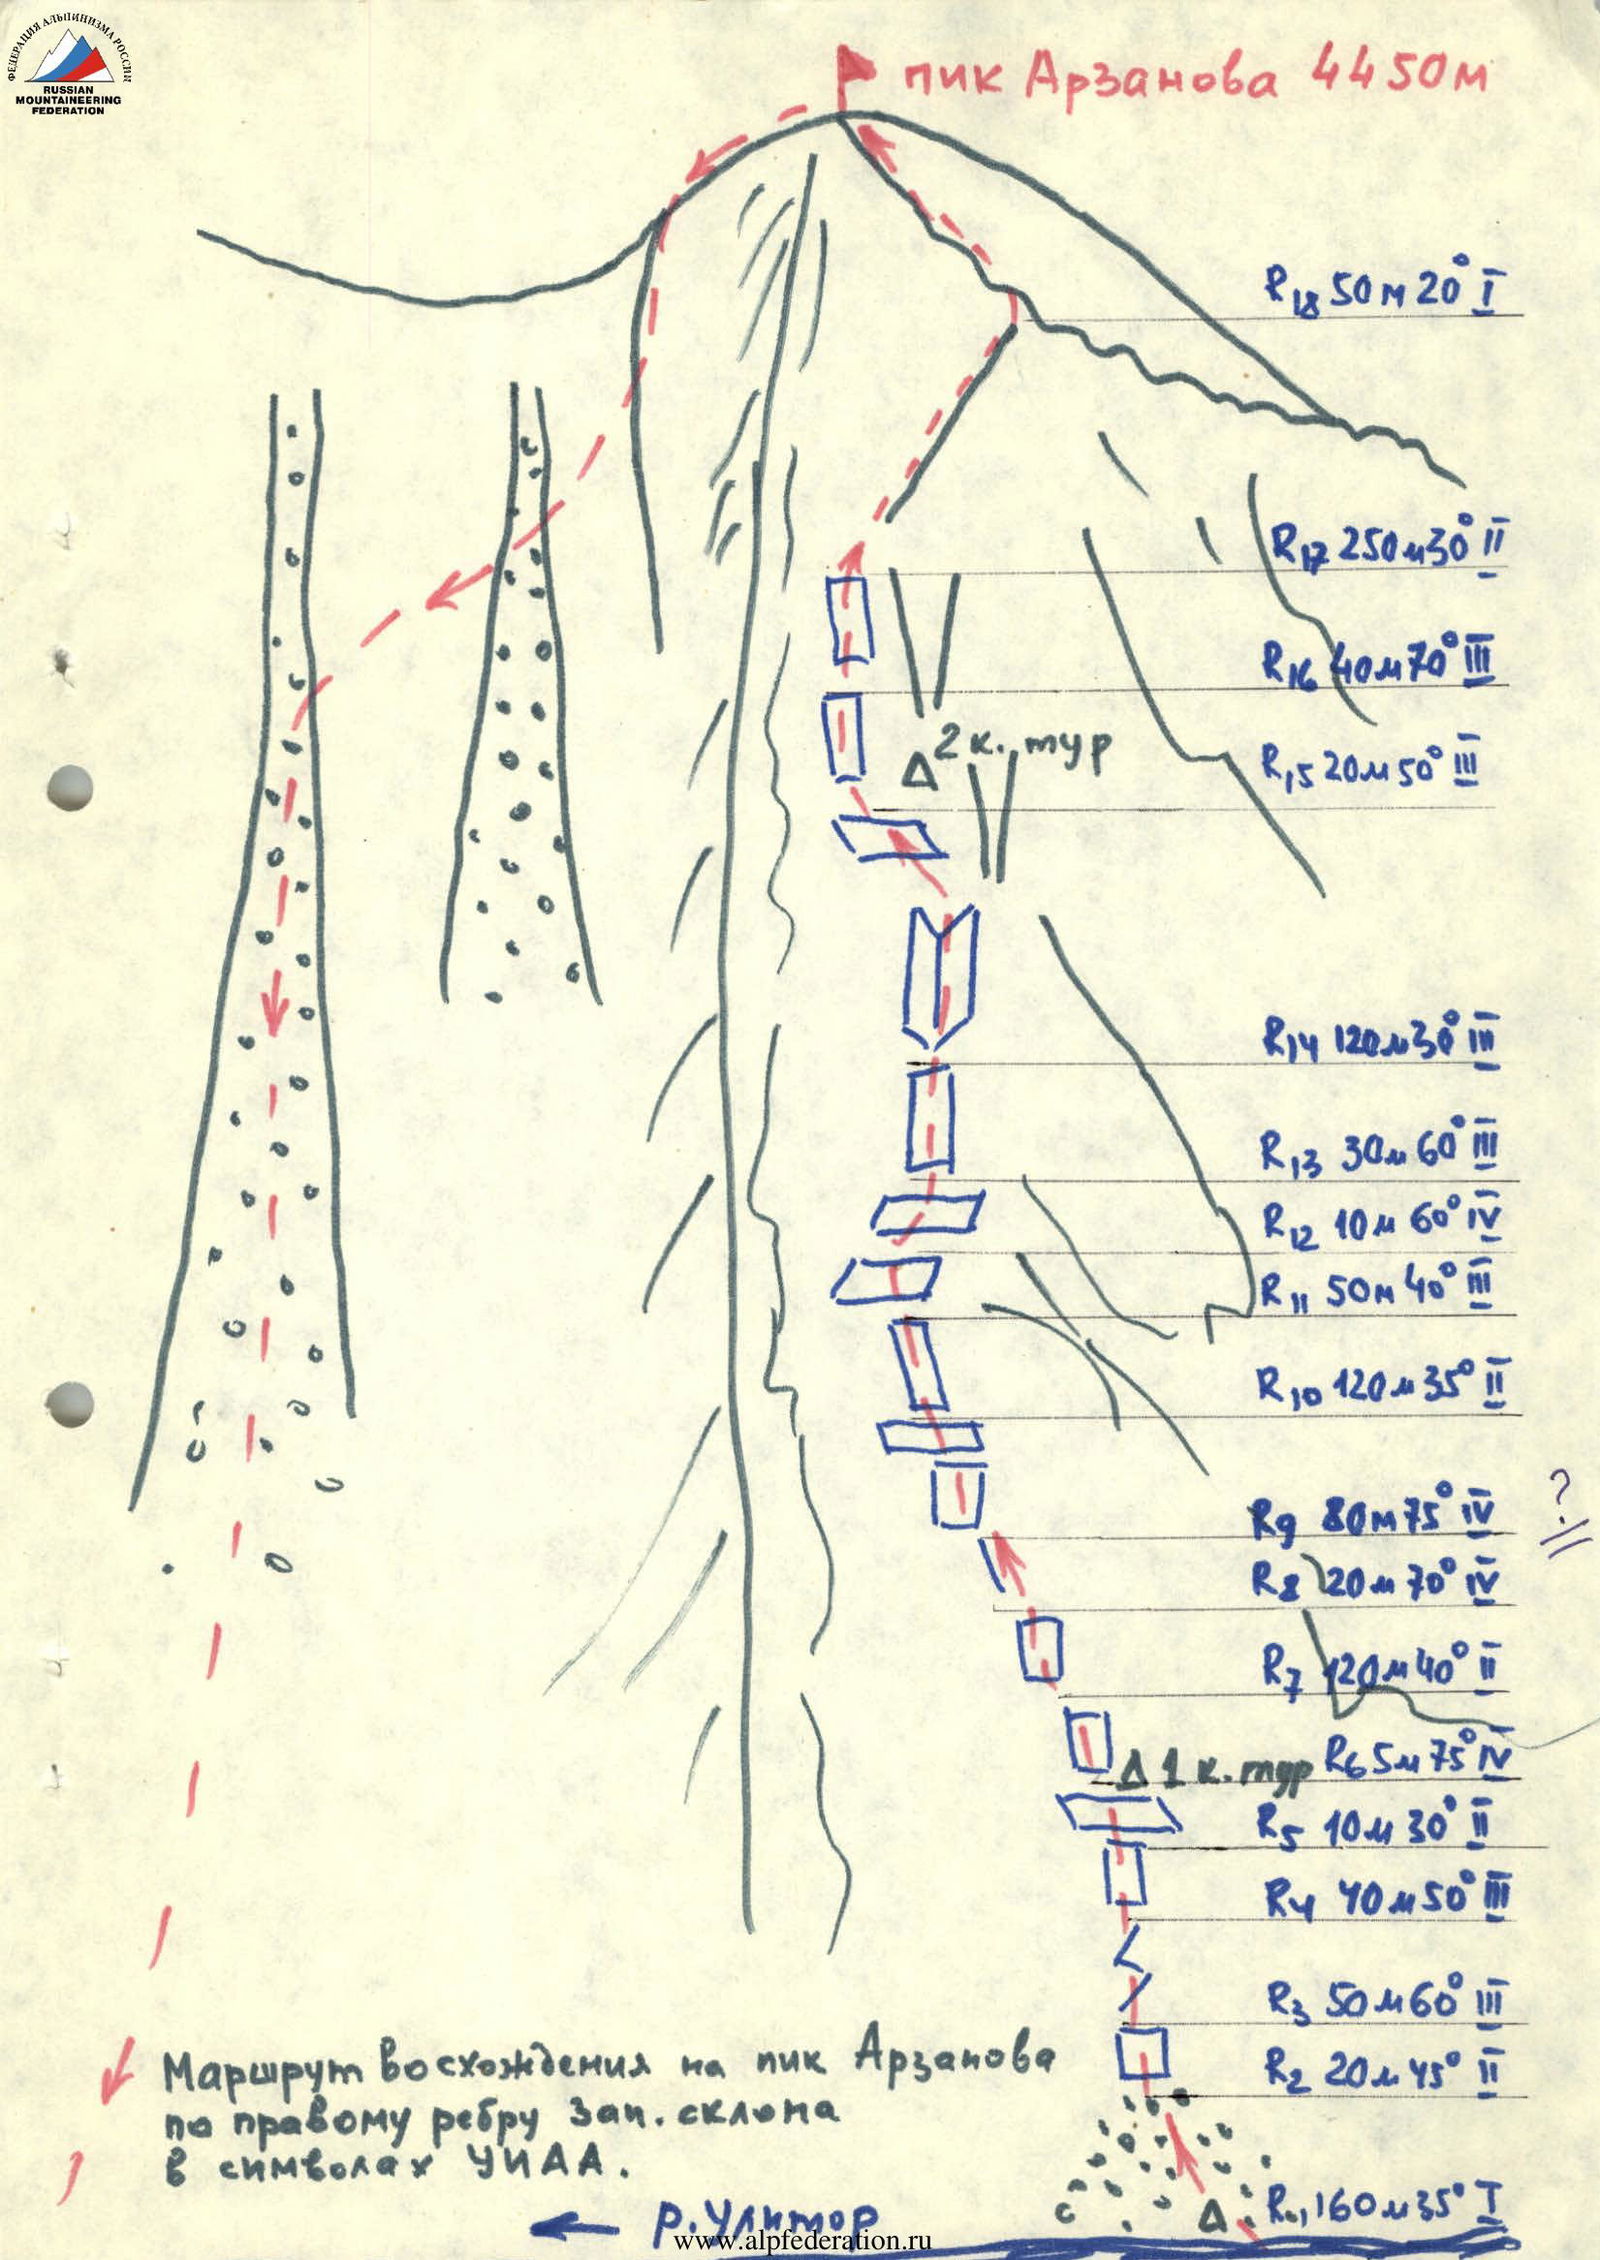 ФЕДЕРАЦИЯ АЛЬПИНИЗМА РОССИИ
RUSSIAN
MOUNTAINEERING
FEDERATION
пик Арзанова 4450м
R18 50м 20° I
R17 250м 30° II
R16 40м 70° III
2 к. тур
R15 20м 50° III
R14 120м 30° III
R13 30м 60° III
R12 10м 60° IV
R11 50м 40° III
R10 120м 35° II
R9 80м 75° IV
?
R8 20м 70° IV
R7 120м 40° II
1 к. тур R6 5м 75° IV
R5 10м 30° II
R4 40м 50° III
R3 50м 60° III
R2 20м 45° II
Маршрут восхождения на пик Арзанова
по правому ребру Зап. склона
в символах УИАА.
R1 160м 35° I
р. Улитор
www.alpfederation.ru